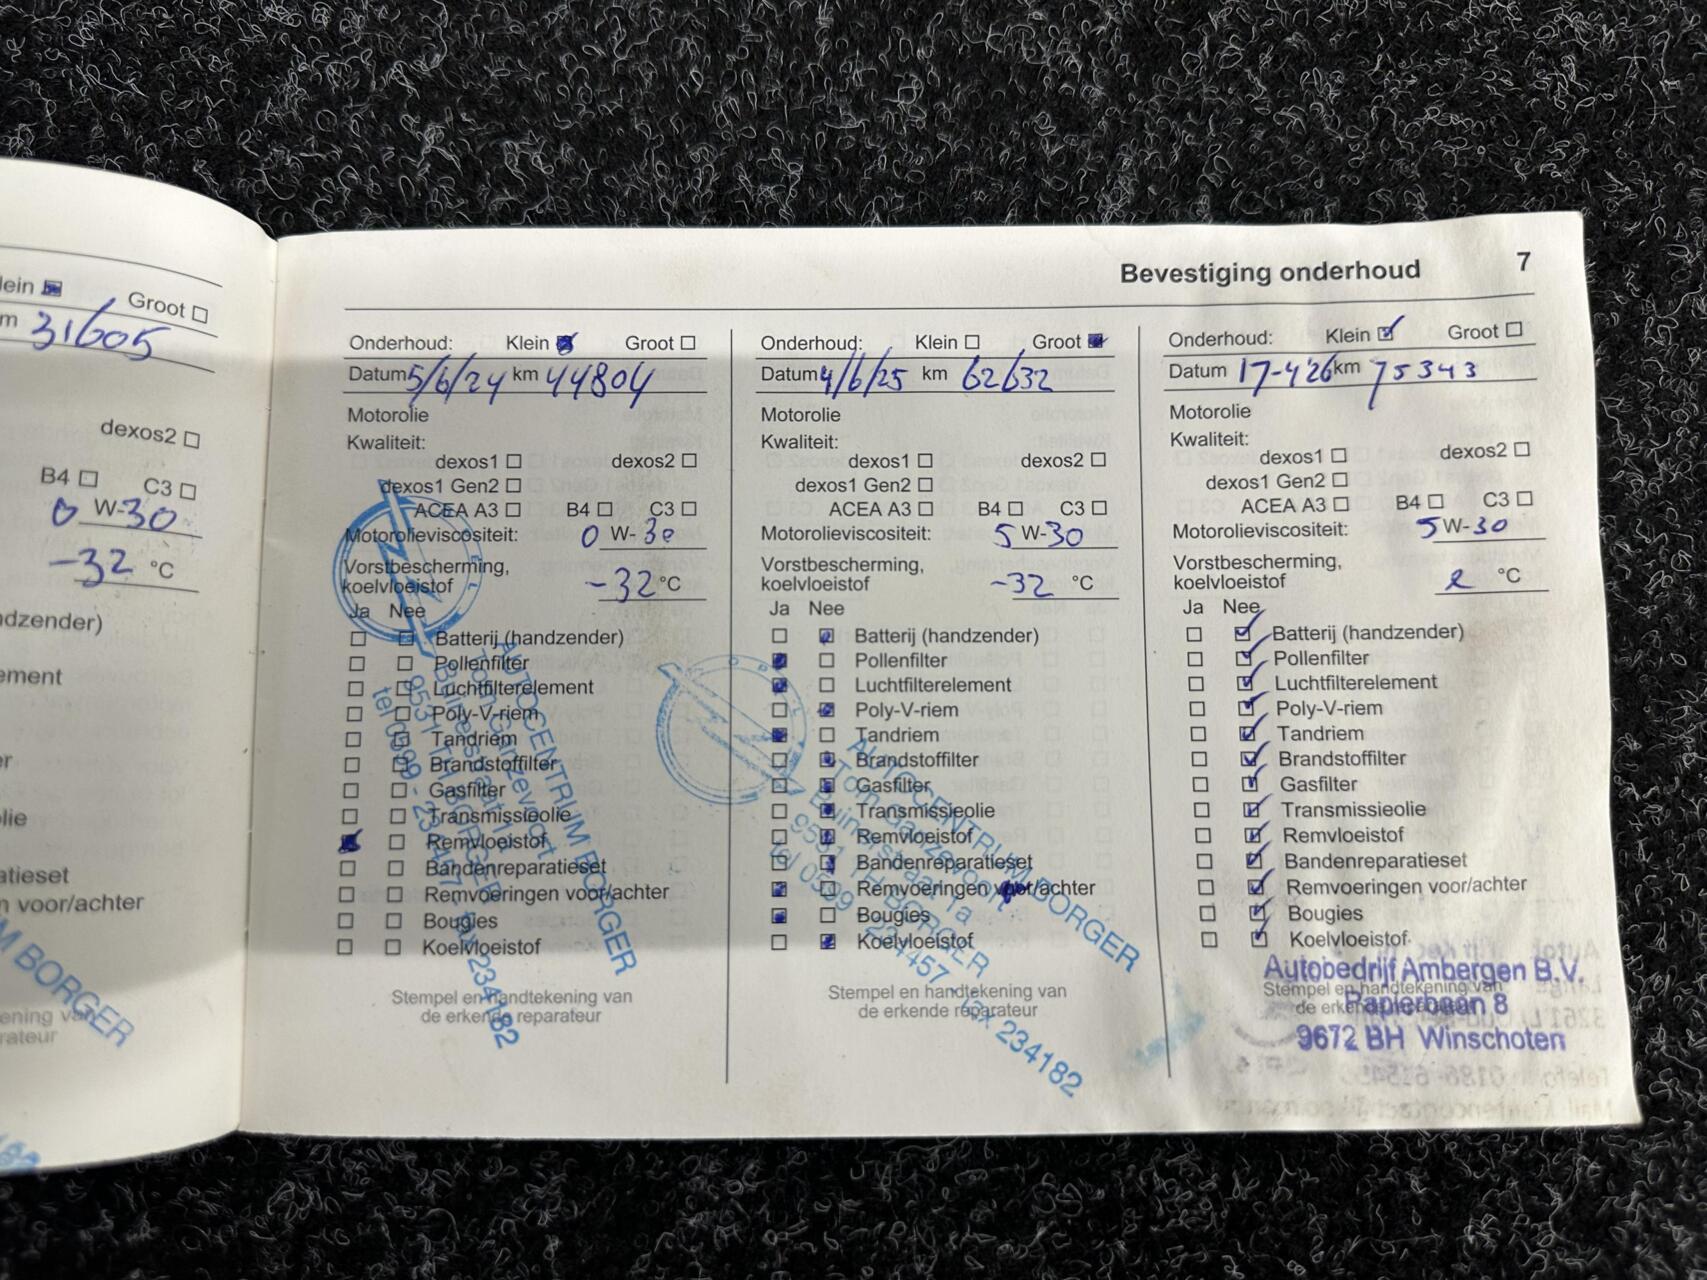 lein Groot
m 31605
dexos2
B4 C3
0 W-30
-32 °C
dzender)
ement
r
lie
atieset
n voor/achter
M BORGER
ening van
rateur
Bevestiging onderhoud 7
Onderhoud: Klein Groot
Datum 5/6/24 km 44804
Motorolie
Kwaliteit:
dexos1 dexos2
dexos1 Gen2
ACEA A3 B4 C3
Motorolieviscositeit: 0 W-30
Vorstbescherming,
koelvloeistof -32 °C
Ja Nee
Batterij (handzender)
Pollenfilter
Luchtfilterelement
Poly-V-riem
Tandriem
Brandstoffilter
Gasfilter
Transmissieolie
Remvloeistof
Bandenreparatieset
Remvoeringen voor/achter
Bougies
Koelvloeistof
Stempel en handtekening van
de erkende reparateur
AUTOCENTRUM BORGER
Tom Ganzevoort
9531 TH BORGER
tel 0599 - 234457 - fax 234182
Onderhoud: Klein Groot
Datum 4/6/25 km 62632
Motorolie
Kwaliteit:
dexos1 dexos2
dexos1 Gen2
ACEA A3 B4 C3
Motorolieviscositeit: 5 W-30
Vorstbescherming,
koelvloeistof -32 °C
Ja Nee
Batterij (handzender)
Pollenfilter
Luchtfilterelement
Poly-V-riem
Tandriem
Brandstoffilter
Gasfilter
Transmissieolie
Remvloeistof
Bandenreparatieset
Remvoeringen voor/achter
Bougies
Koelvloeistof
Stempel en handtekening van
de erkende reparateur
OPEL
AUTOCENTRUM BORGER
Tom Ganzevoort
9531 TH BORGER
tel 0599 - 234457 - fax 234182
Onderhoud: Klein Groot
Datum 17-4'26 km 75343
Motorolie
Kwaliteit:
dexos1 dexos2
dexos1 Gen2
ACEA A3 B4 C3
Motorolieviscositeit: 5 W-30
Vorstbescherming,
koelvloeistof °C
Ja Nee
Batterij (handzender)
Pollenfilter
Luchtfilterelement
Poly-V-riem
Tandriem
Brandstoffilter
Gasfilter
Transmissieolie
Remvloeistof
Bandenreparatieset
Remvoeringen voor/achter
Bougies
Koelvloeistof
Autobedrijf Ambergen B.V.
Stempel en handtekening van
de erkende
Papierbaan 8
9672 BH Winschoten